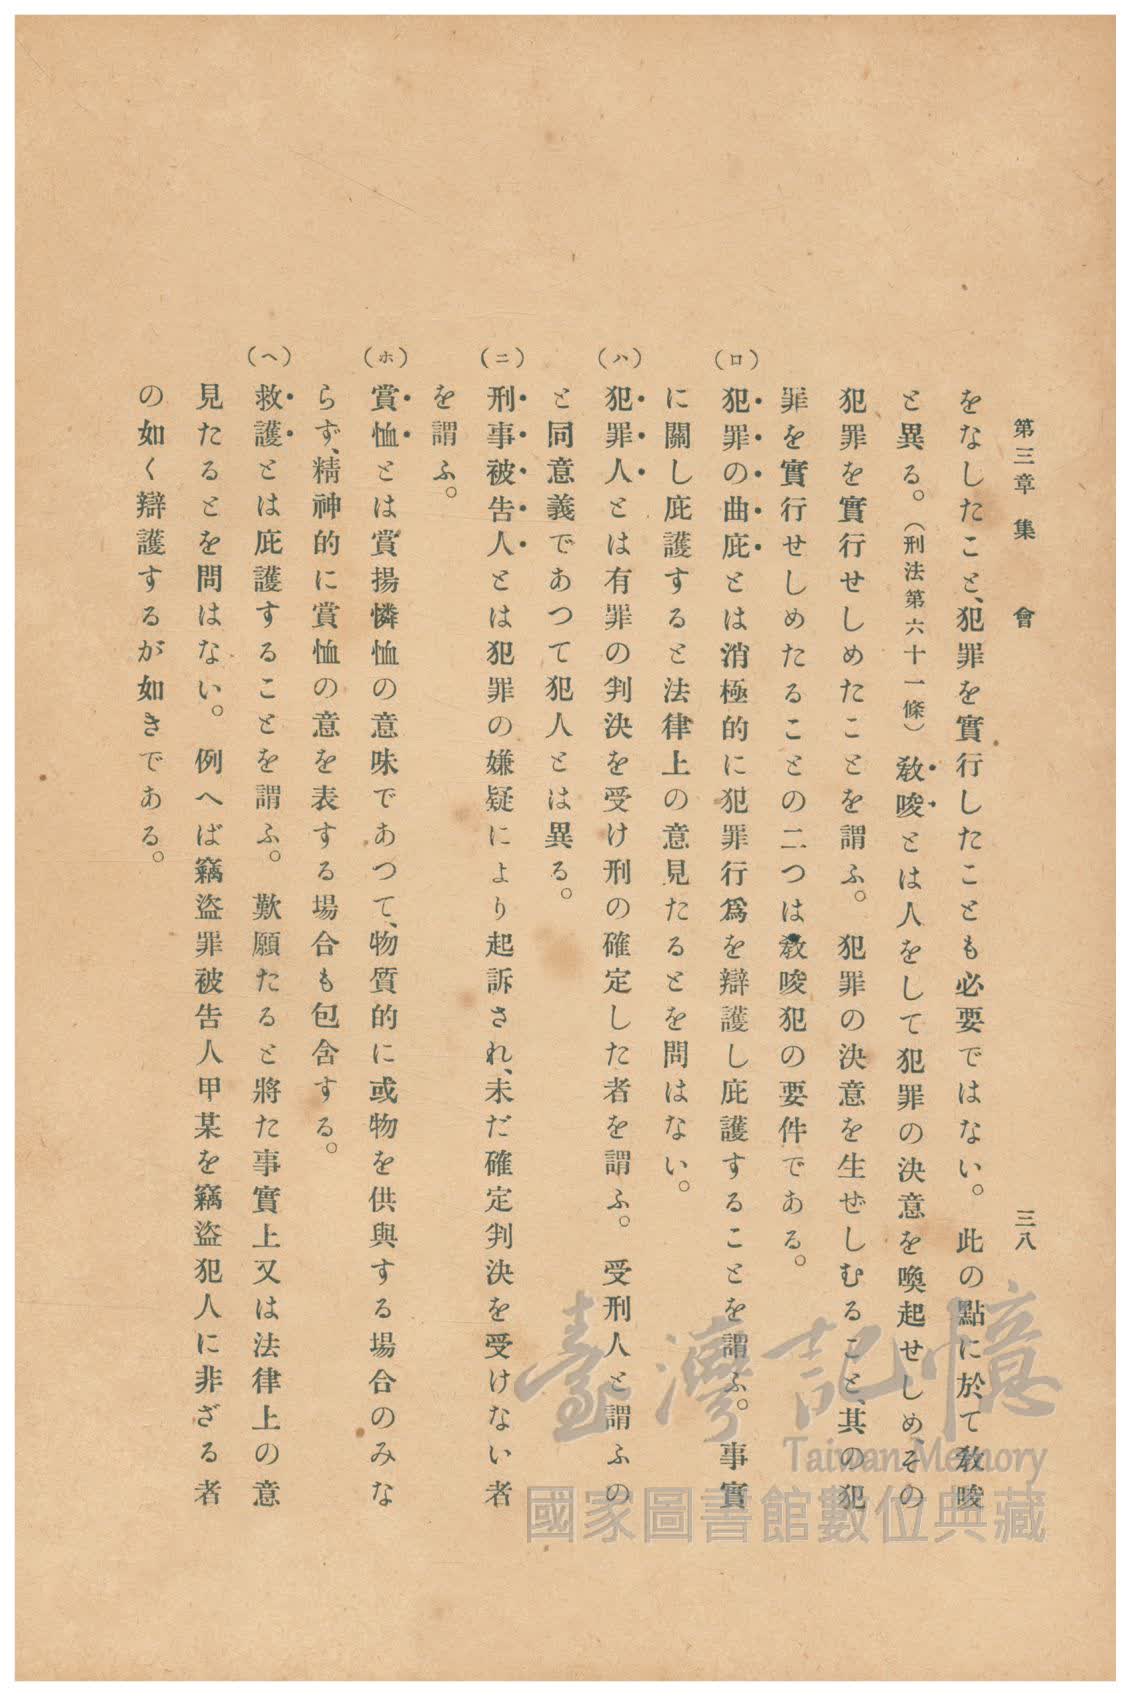 第三章　集　會　三八
をなしたこと、犯罪を實行したことも必要ではない。此の點に於て敎唆
と異る。（刑法第六十一條）敎唆とは人をして犯罪の決意を喚起せしめその
犯罪を實行せしめたことを謂ふ。犯罪の決意を生ぜしむること、其の犯
罪を實行せしめたることの二つは敎唆犯の要件である。
（ロ）犯罪の曲庇とは消極的に犯罪行爲を辯護し庇護することを謂ふ。事實
に關し庇護すると法律上の意見たるとを問はない。
（ハ）犯罪人とは有罪の判決を受け刑の確定した者を謂ふ。受刑人と謂ふの
と同意義であつて犯人とは異る。
（ニ）刑事被告人とは犯罪の嫌疑により起訴され、未だ確定判決を受けない者
を謂ふ。
（ホ）賞恤とは賞揚憐恤の意味であつて、物質的に或物を供與する場合のみな
らず、精神的に賞恤の意を表する場合も包含する。
（ヘ）救護とは庇護することを謂ふ。歎願たると將た事實上又は法律上の意
見たるとを問はない。例へば竊盜罪被告人甲某を竊盜犯人に非ざる者
の如く辯護するが如きである。
臺灣記憶
Taiwan Memory
國家圖書館數位典藏